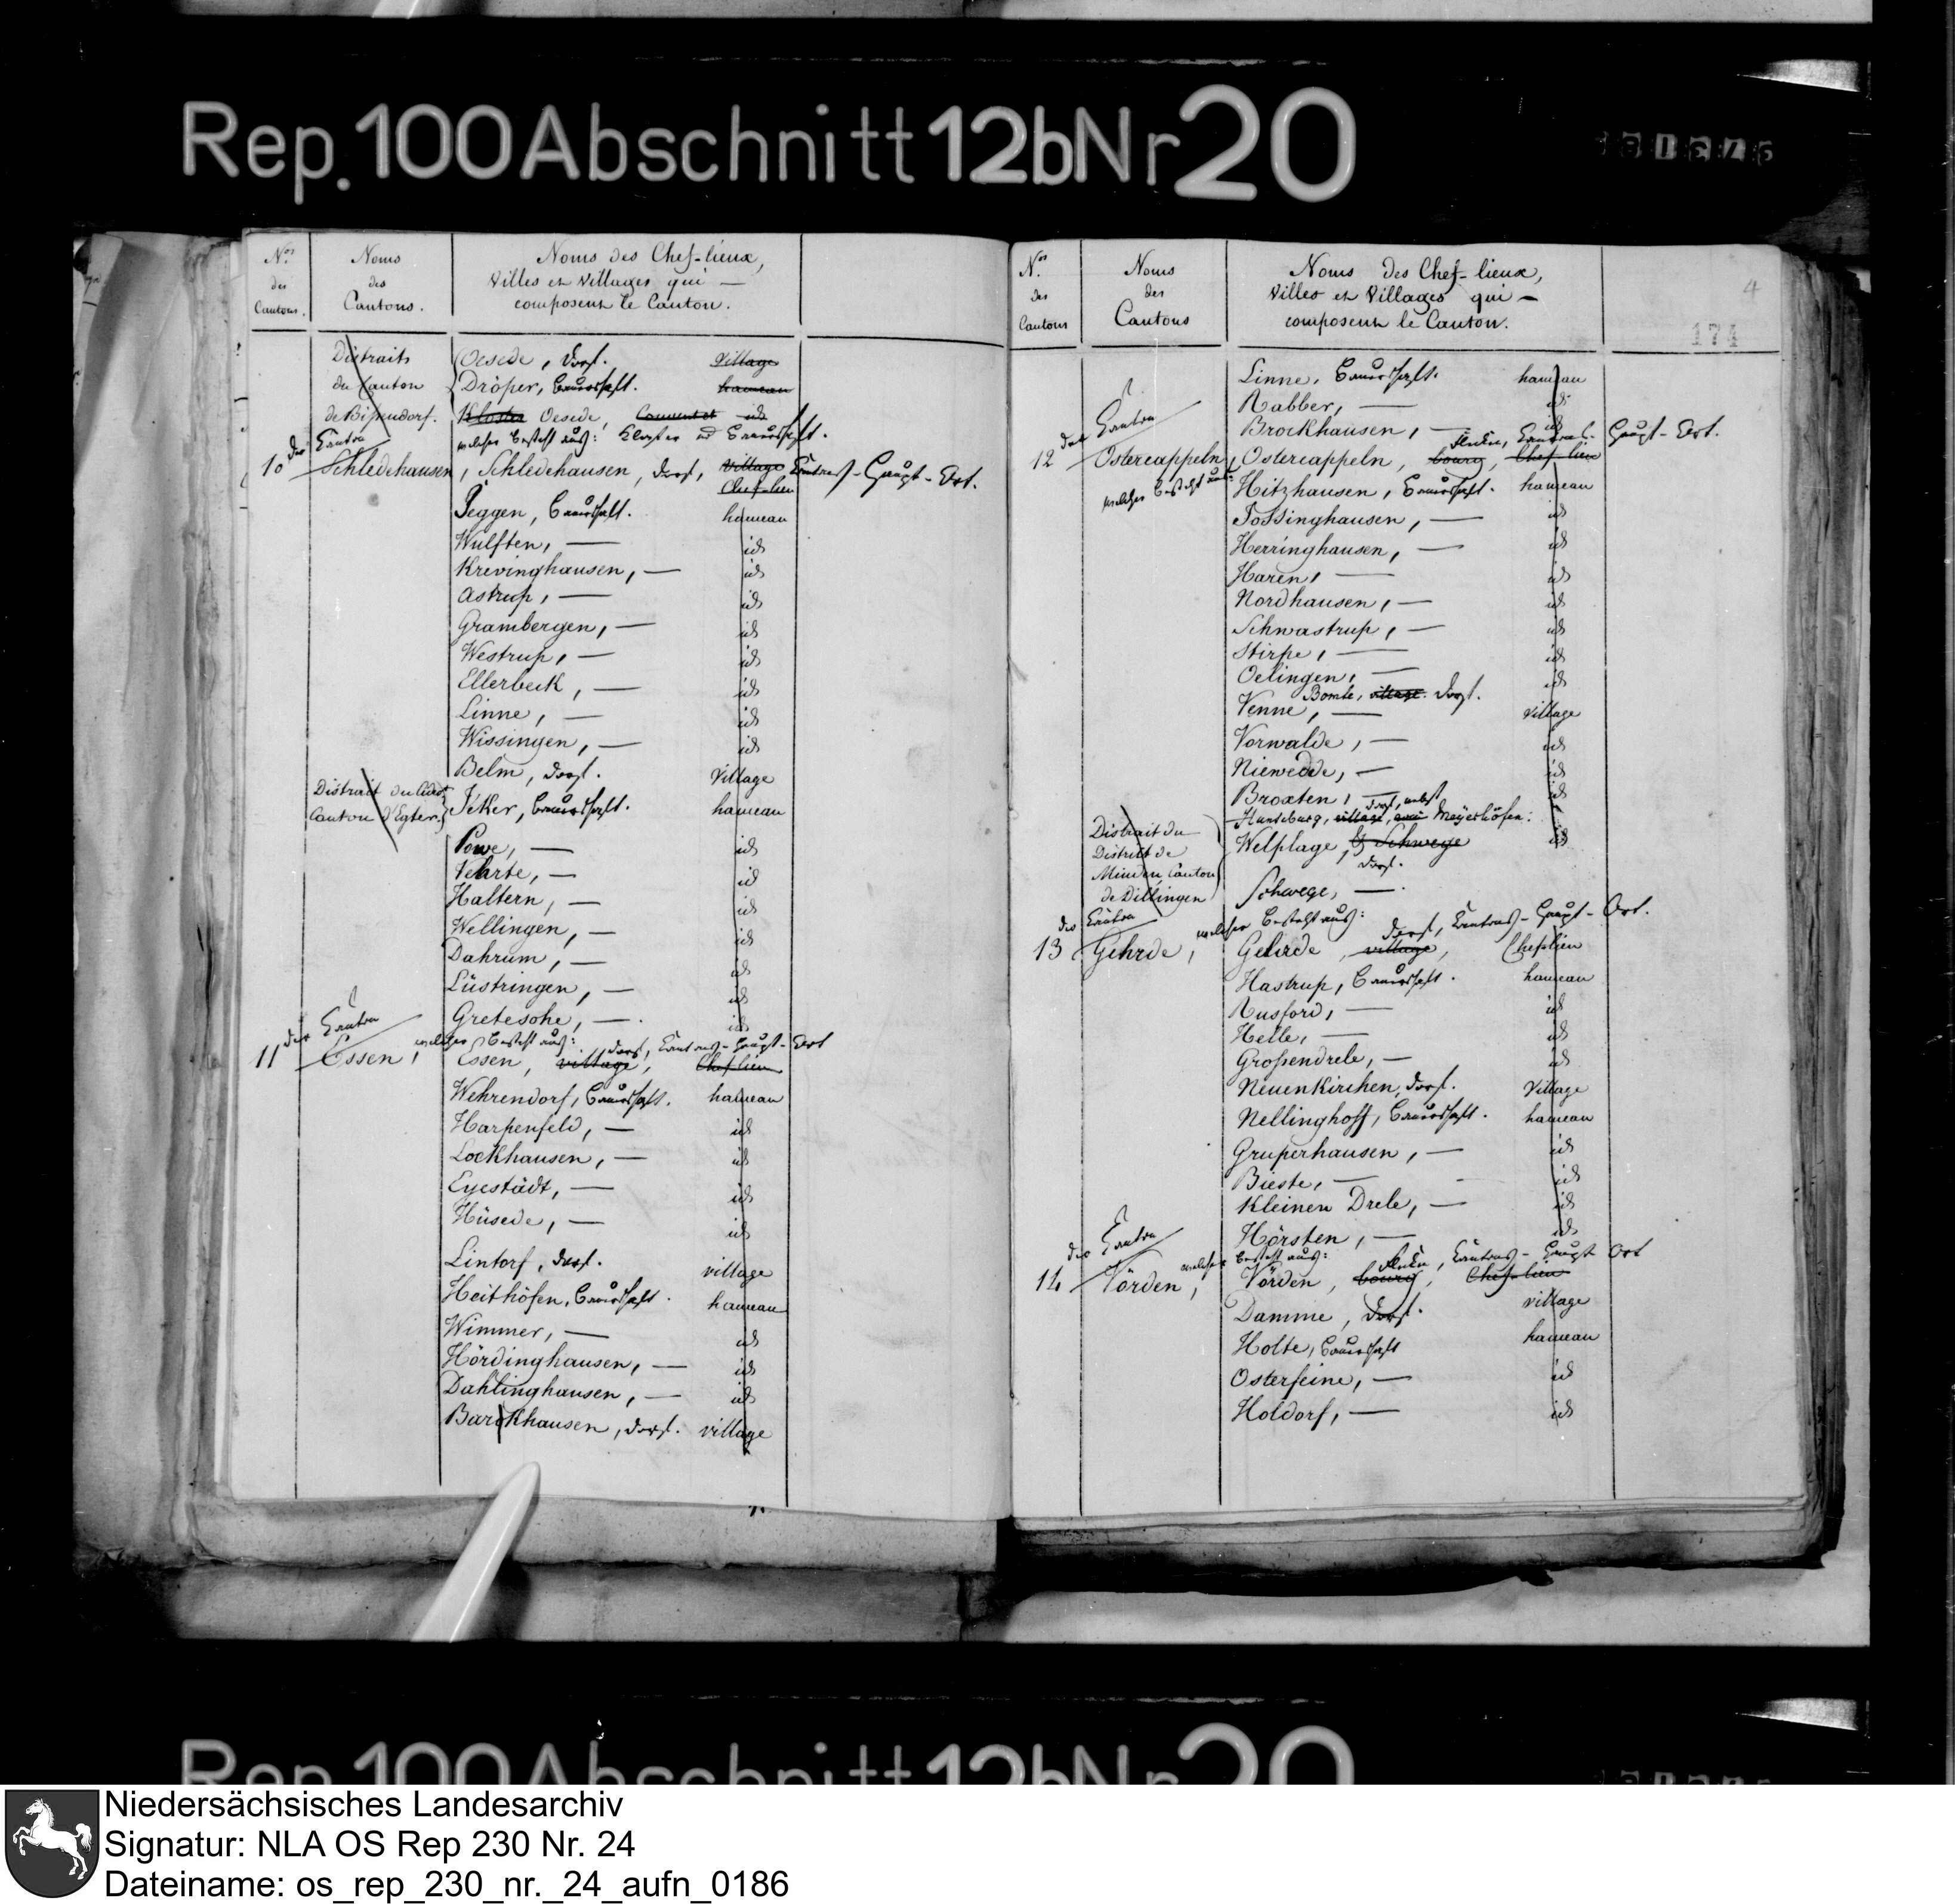 Rep. 100 Abschnitt 12b Nr 20
Nos des Cantons.
Noms des Cantons.
Noms des Chef-lieux, Villes et Villages qui — composent le Canton.
Distraits du Canton de Bissendorf.
Oesede, Dorf. Village
Dröper, Bauerschaft. hameau
Kloster Oesede, Couvent et id
welcher besteht aus: Kloster und Bauerschaft.
10 der Canton Schledehausen, Schledehausen, Dorf, Village Cantons-Haupt-Ort.
Chef-lieu
Jeggen, Bauerschaft. hameau
Wulften, — id
Krevinghausen, — id
Astrup, — id
Grambergen, — id
Westrup, — id
Ellerbeck, — id
Linne, — id
Wissingen, — id
Belm, Dorf. Village
Distrait du Canton d'Egter.
Jeker, Bauerschaft. hameau
Powe, — id
Vehrte, — id
Haltern, — id
Wellingen, — id
Dahrum, — id
Lüstringen, — id
Gretesche, — id
der Canton welcher besteht aus: Dorf, Cantons-Haupt-Ort
11 Essen, Essen, village, Chef lieu
Wehrendorf, Bauerschaft. hameau
Harpenfeld, — id
Lockhausen, — id
Eyestädt, — id
Hüsede, — id
Lintorf, Dorf. village
Heithöfen, Bauerschaft. hameau
Wimmer, — id
Hördinghausen, — id
Dahlinghausen, — id
Barckhausen, Dorf. village
Nos des Cantons
Noms des Cantons
Noms des Chef-lieux, Villes et Villages qui — composent le Canton.
4
174
Linne, Bauerschaft. hameau
Rabber, — id
Brockhausen, — id
der Canton Flecken, Cantons-Haupt-Ort.
12 Ostercappeln, Ostercappeln, bourg, Chef lieu
welcher besteht aus:
Hitzhausen, Bauerschaft. hameau
Jössinghausen, — id
Herringhausen, — id
Haren, — id
Nordhausen, — id
Schwastrup, — id
Stirpe, — id
Oelingen, — id
Bomte, village. Dorf.
Venne, — village
Vorwalde, — id
Niewedde, — id
Broxten, — id
Hunteburg, village, Dorf, nebst Meyerhöfen:
Distrait du District de Minden Canton de Dillingen
Welplage, & Schwege id
Dorf.
Schwege, —.
der Canton welcher besteht aus: Dorf, Cantons-Haupt-Ort.
13 Gehrde, Gehrde, village, Cheflieu
Hastrup, Bauerschaft. hameau
Rusford, — id
Helle, — id
Großendrele, — id
Neuenkirchen, Dorf. Village
Nellinghoff, Bauerschaft. hameau
Gruperhausen, — id
Bieste, — id
Kleinen Drele, — id
Hörsten, — id
der Canton welcher besteht aus: Flecken, Cantons-Haupt Ort
14 Vörden, Vörden, bourg, Chef-lieu
Damme, Dorf. village
Holte, Bauerschaft hameau
Osterfeine, — id
Holdorf, — id
Rep. 100 Abschnitt 12b Nr 20
Niedersächsisches Landesarchiv
Signatur: NLA OS Rep 230 Nr. 24
Dateiname: os_rep_230_nr._24_aufn_0186